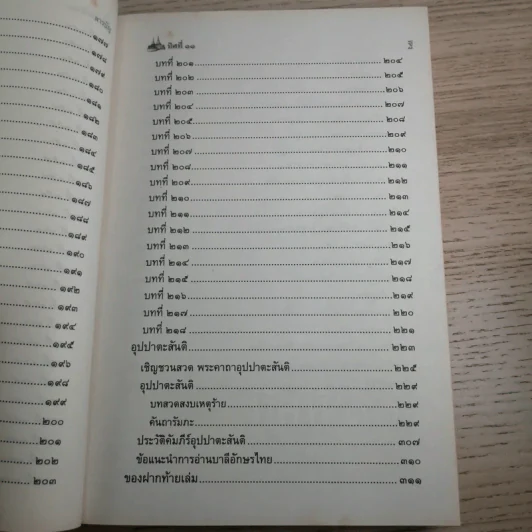 สารบัญ
๑๗๗
๑๗๘
๑๗๙
๑๘๐
๑๘๑
๑๘๒
๑๘๓
๑๘๔
๑๘๕
๑๘๖
๑๘๗
๑๘๘
๑๘๙
๑๙๐
๑๙๑
๑๙๒
๑๙๓
๑๙๔
๑๙๕
๑๙๖
๑๙๘
๑๙๙
๒๐๐
๒๐๑
๒๐๒
๒๐๓
ทิศที่ ๑๑
บทที่ ๒๐๑ ๒๐๔
บทที่ ๒๐๒ ๒๐๕
บทที่ ๒๐๓ ๒๐๖
บทที่ ๒๐๔ ๒๐๗
บทที่ ๒๐๕ ๒๐๘
บทที่ ๒๐๖ ๒๐๙
บทที่ ๒๐๗ ๒๑๐
บทที่ ๒๐๘ ๒๑๑
บทที่ ๒๐๙ ๒๑๒
บทที่ ๒๑๐ ๒๑๓
บทที่ ๒๑๑ ๒๑๔
บทที่ ๒๑๒ ๒๑๕
บทที่ ๒๑๓ ๒๑๖
บทที่ ๒๑๔ ๒๑๗
บทที่ ๒๑๕ ๒๑๘
บทที่ ๒๑๖ ๒๑๙
บทที่ ๒๑๗ ๒๒๐
บทที่ ๒๑๘ ๒๒๑
อุปปาตะสันติ ๒๒๓
เชิญชวนสวด พระคาถาอุปปาตะสันติ ๒๒๕
อุปปาตะสันติ ๒๒๙
บทสวดสงบเหตุร้าย ๒๒๙
คันถารัมภะ ๒๒๙
ประวัติคัมภีร์อุปปาตะสันติ ๓๐๗
ข้อแนะนำการอ่านบาลีอักษรไทย ๓๑๐
ของฝากท้ายเล่ม ๓๑๑